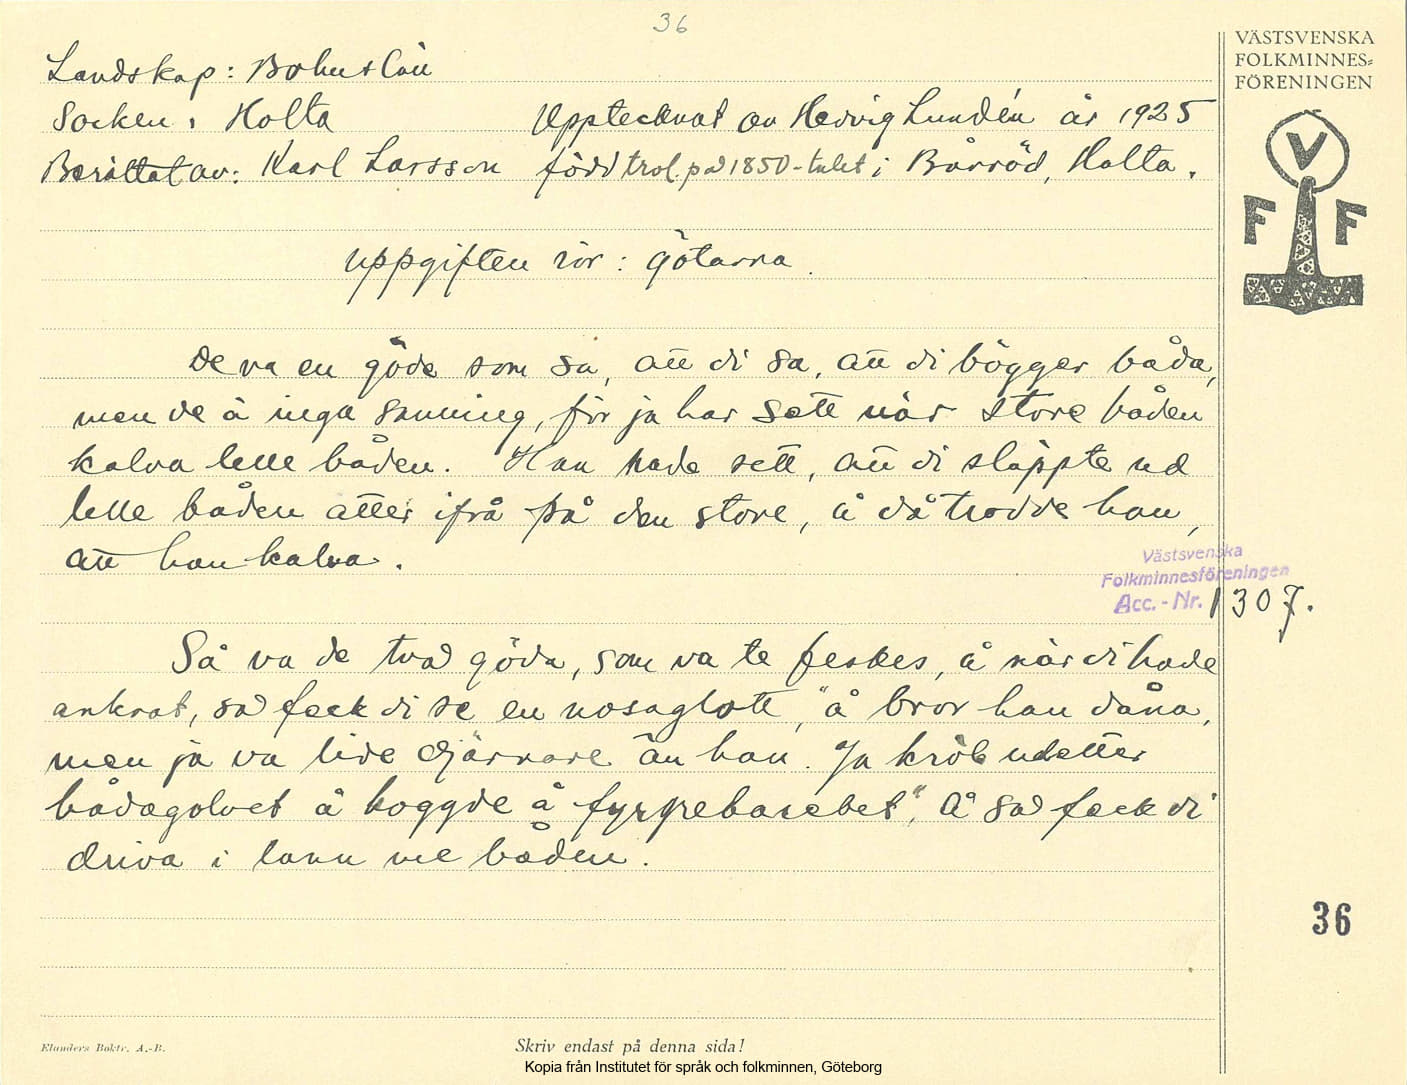 36
VÄSTSVENSKA
FOLKMINNES=
FÖRENINGEN
V
F F
Landskap: Bohuslän
Socken: Holta Upptecknat av Hedvig Lundén år 1925
Berättat av: Karl Larsson född trol. på 1850-talet i Bärröd, Holta.
Uppgiften rör: götarna.
De va en göde som sa, att di sa, att di bögger båda,
men de ä inga sanning, för ja har sett når store båden
kalva lelle båden. Han hade sett, att di släppte ud
lelle båden atter ifrå på den store, å då trodde han,
att han kalva.
Västsvenska
Folkminnesföreningen
Acc.-Nr. 1307.
Så va de två göda, som va te feskes, å når di hade
ankrat, så feck di se en nosaglott, "å bror han dåna,
men ja va lide djärvare än han. Ja kröb udetter
bådagolvet å hoggde å fyrprebasebet". Å så feck di
driva i lann me båden.
36
Elanders Boktr. A.-B.
Skriv endast på denna sida!
Kopia från Institutet för språk och folkminnen, Göteborg